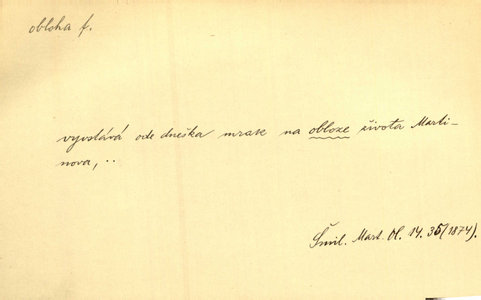 obloha f.
vyvstává ode dneška mrak na obloze života Marti-
nova, ..
Šmil. Mart. Ol. 14. 35 (1874).